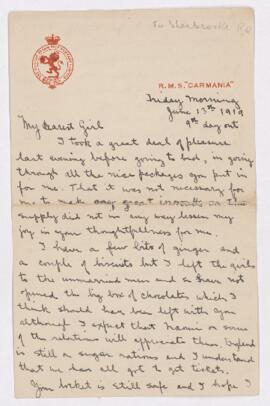 To Sherbrooke
R.M.S. "CARMANIA"
Friday Morning
June 13th 1919
9th day out
My Dearest Girl
I took a great deal of pleasure
last evening before going to bed, in going
through all the nice packages you put in
for me. That it was not necessary for
me to make any great inroads on the
supply did not in any way lessen my
joy in your thoughtfulness for me.
I have a few bits of ginger and
a couple of biscuits but I left the girls
to the unmarried men and so have not
opened the big box of chocolates which I
think should have been left with you
although I expect that or some
of the relatives will appreciate them. England
is still on sugar rations and I understand
that we have all got to get tickets.
Your locket is still safe and I hope I